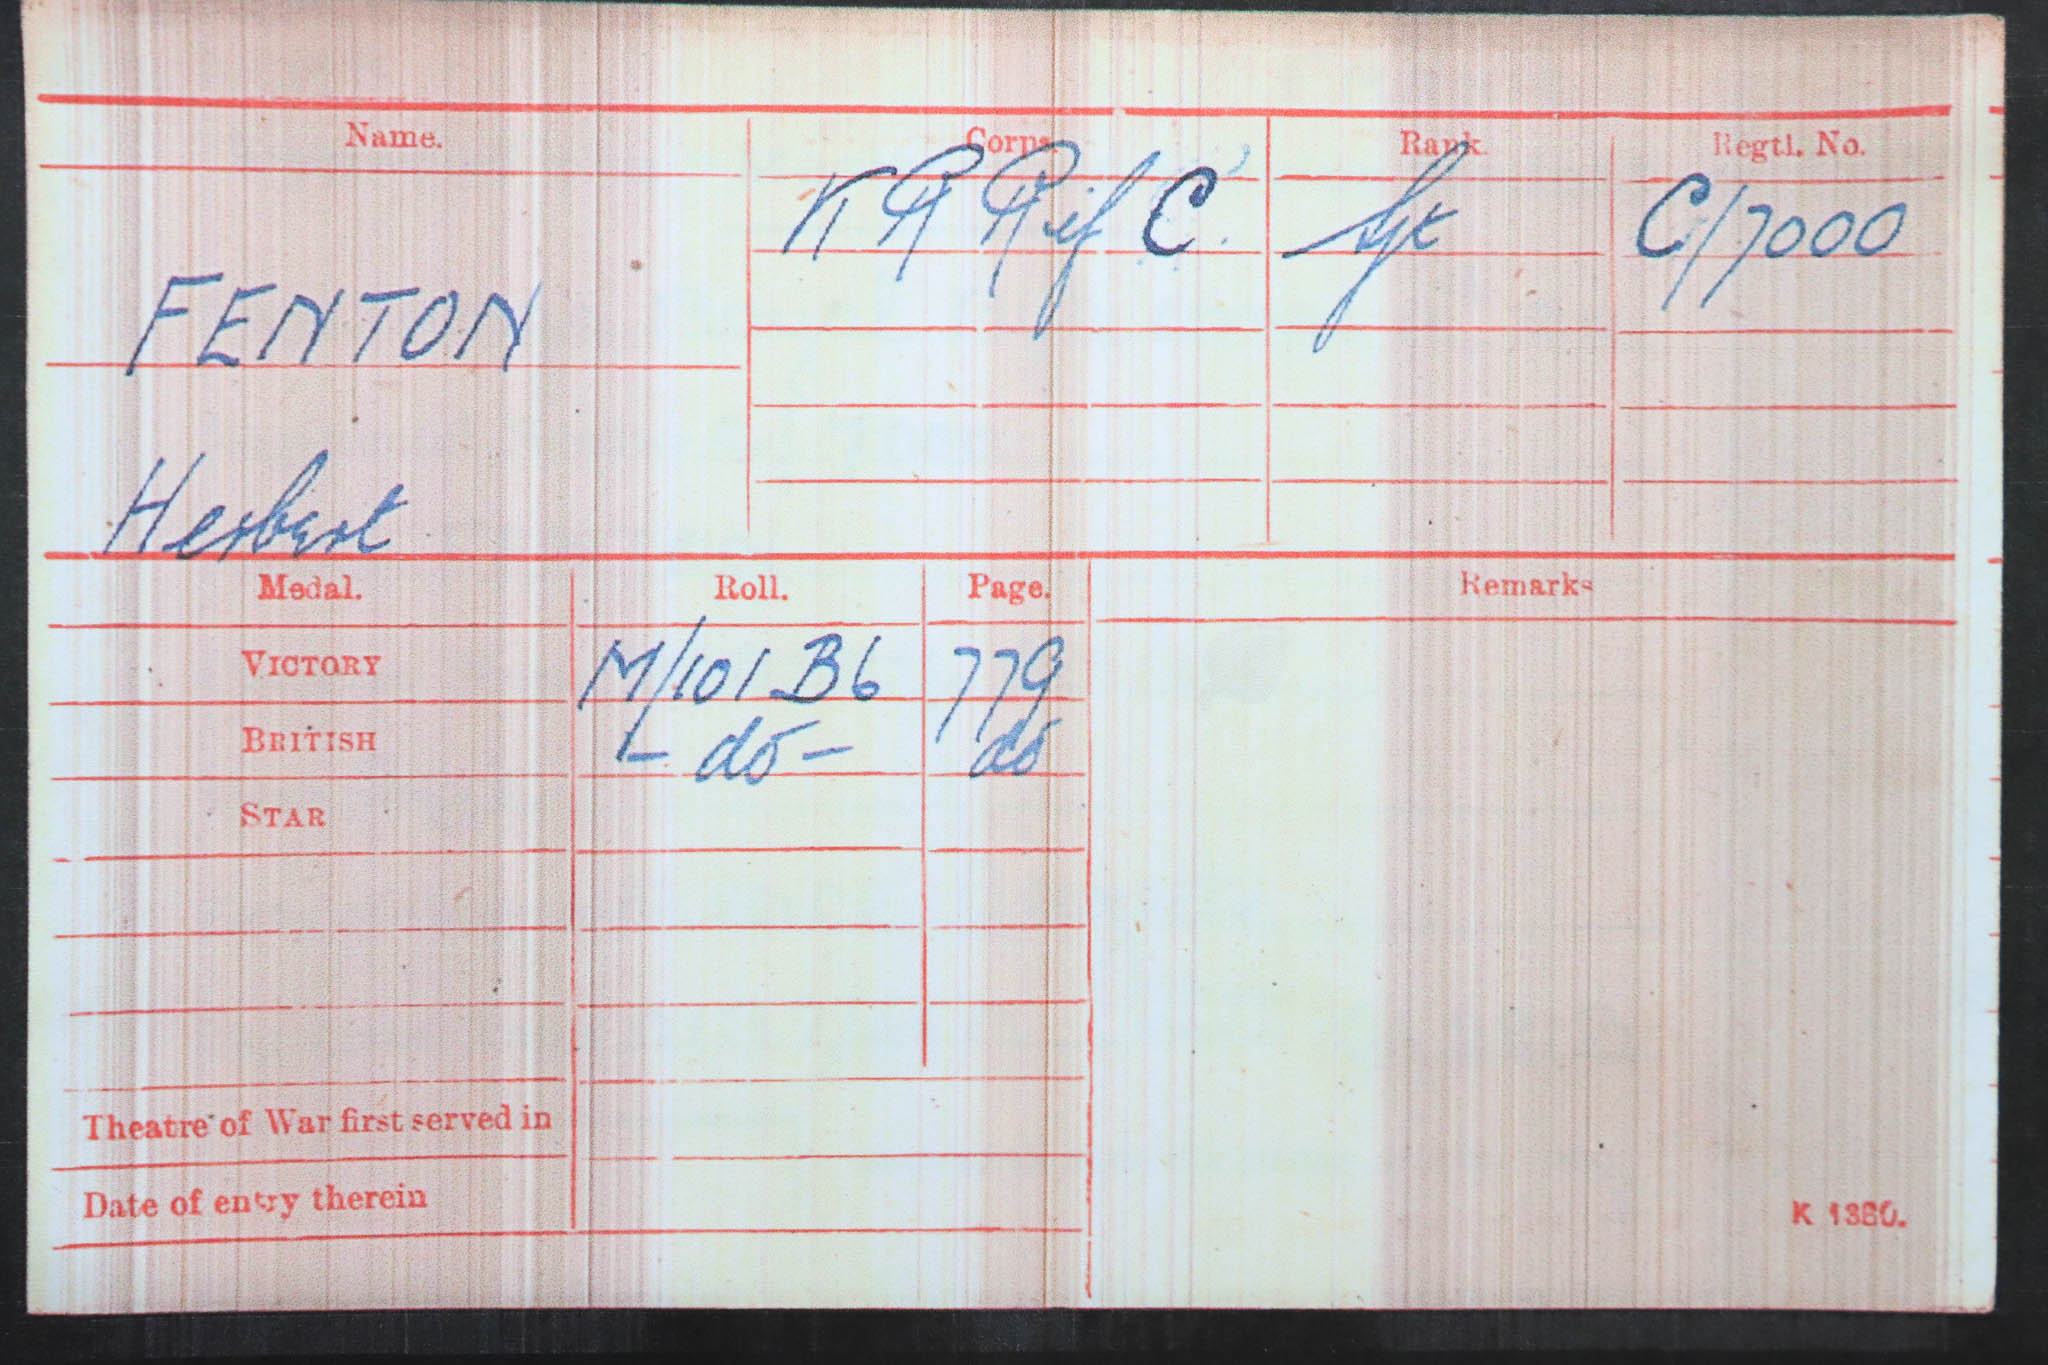 Name. Corps. Rank. Regtl. No.
K R Rif C. Sjt C/7000
FENTON
Herbert
Medal. Roll. Page. Remarks
VICTORY M/101 B6 779
BRITISH - do - do
STAR
Theatre of War first served in
Date of entry therein
K 1380.